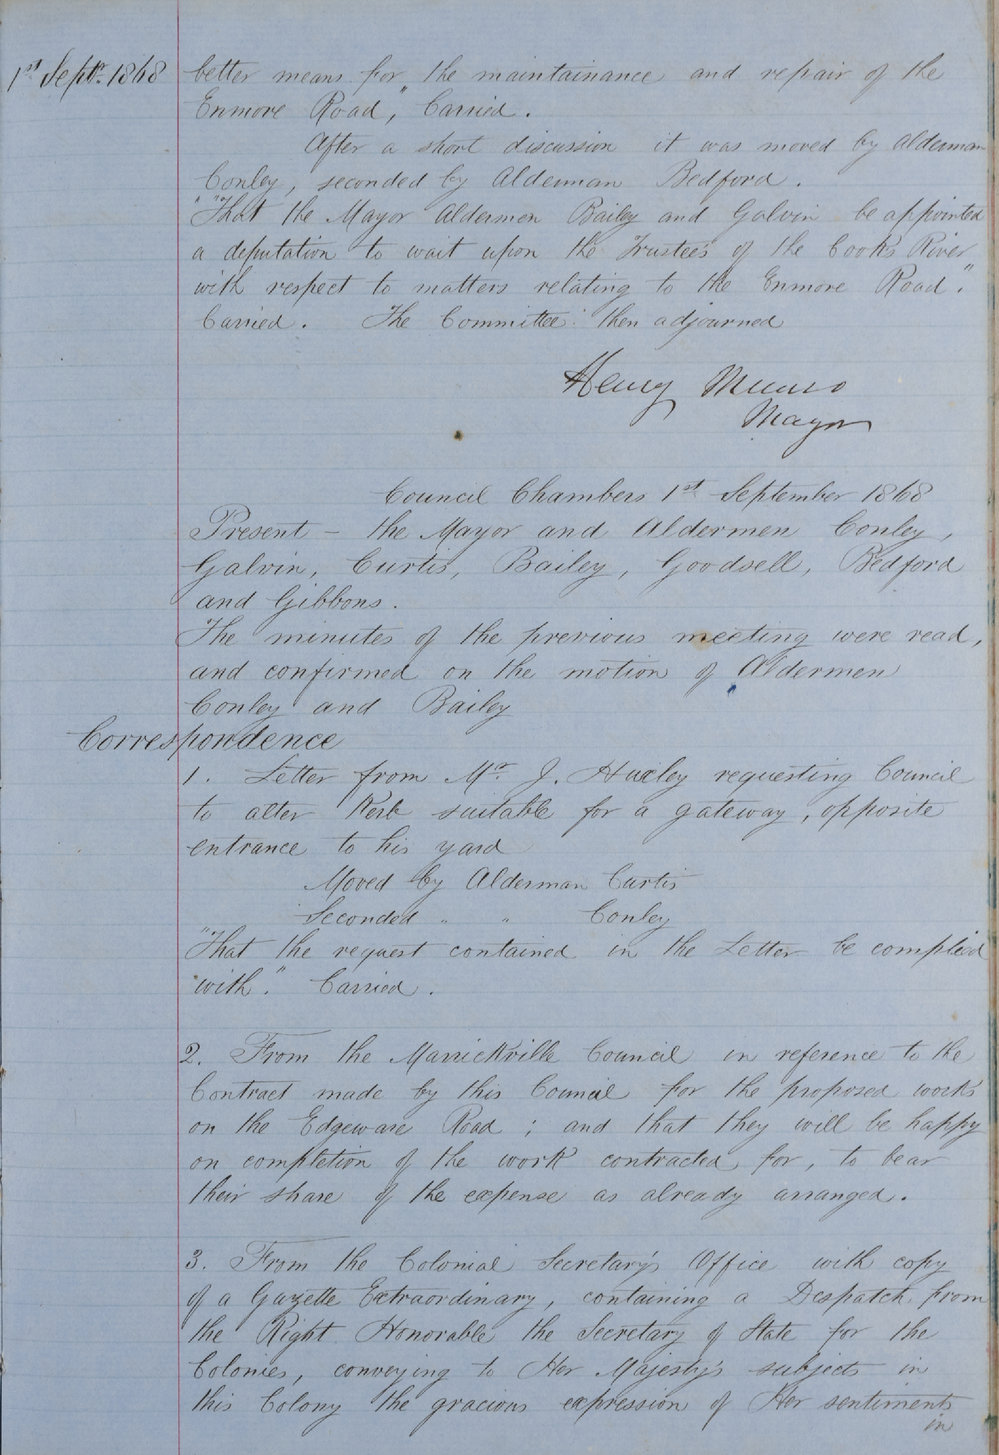 1st Septr. 1868
better means for the maintainance and repair of the
Enmore Road," Carried.
After a short discussion it was moved by Alderman
Conley, seconded by Alderman Bedford.
"That the Mayor Aldermen Bailey and Galvin be appointed
a deputation to wait upon the Trustees of the Cooks River
with respect to matters relating to the Enmore Road."
Carried. The Committee then adjourned
Henry Munro
Mayor
Council Chambers 1st September 1868
Present - the Mayor and Aldermen Conley,
Galvin, Curtis, Bailey, Goodsell, Bedford
and Gibbons.
The minutes of the previous meeting were read,
and confirmed on the motion of Aldermen
Conley and Bailey
Correspondence
1. Letter from Mr. J. Huxley requesting Council
to alter Kerb suitable for a gateway, opposite
entrance to his yard
Moved by Alderman Curtis
Seconded " " Conley
"That the request contained in the Letter be complied
with." Carried.
2. From the Marrickville Council in reference to the
Contract made by this Council for the proposed works
on the Edgeware Road; and that they will be happy
on completion of the work contracted for, to bear
their share of the expense as already arranged.
3. From the Colonial Secretary's Office with copy
of a Gazette Extraordinary, containing a Despatch from
the Right Honorable the Secretary of State for the
Colonies, conveying to Her Majesty's subjects in
this Colony the gracious expression of Her sentiments
in